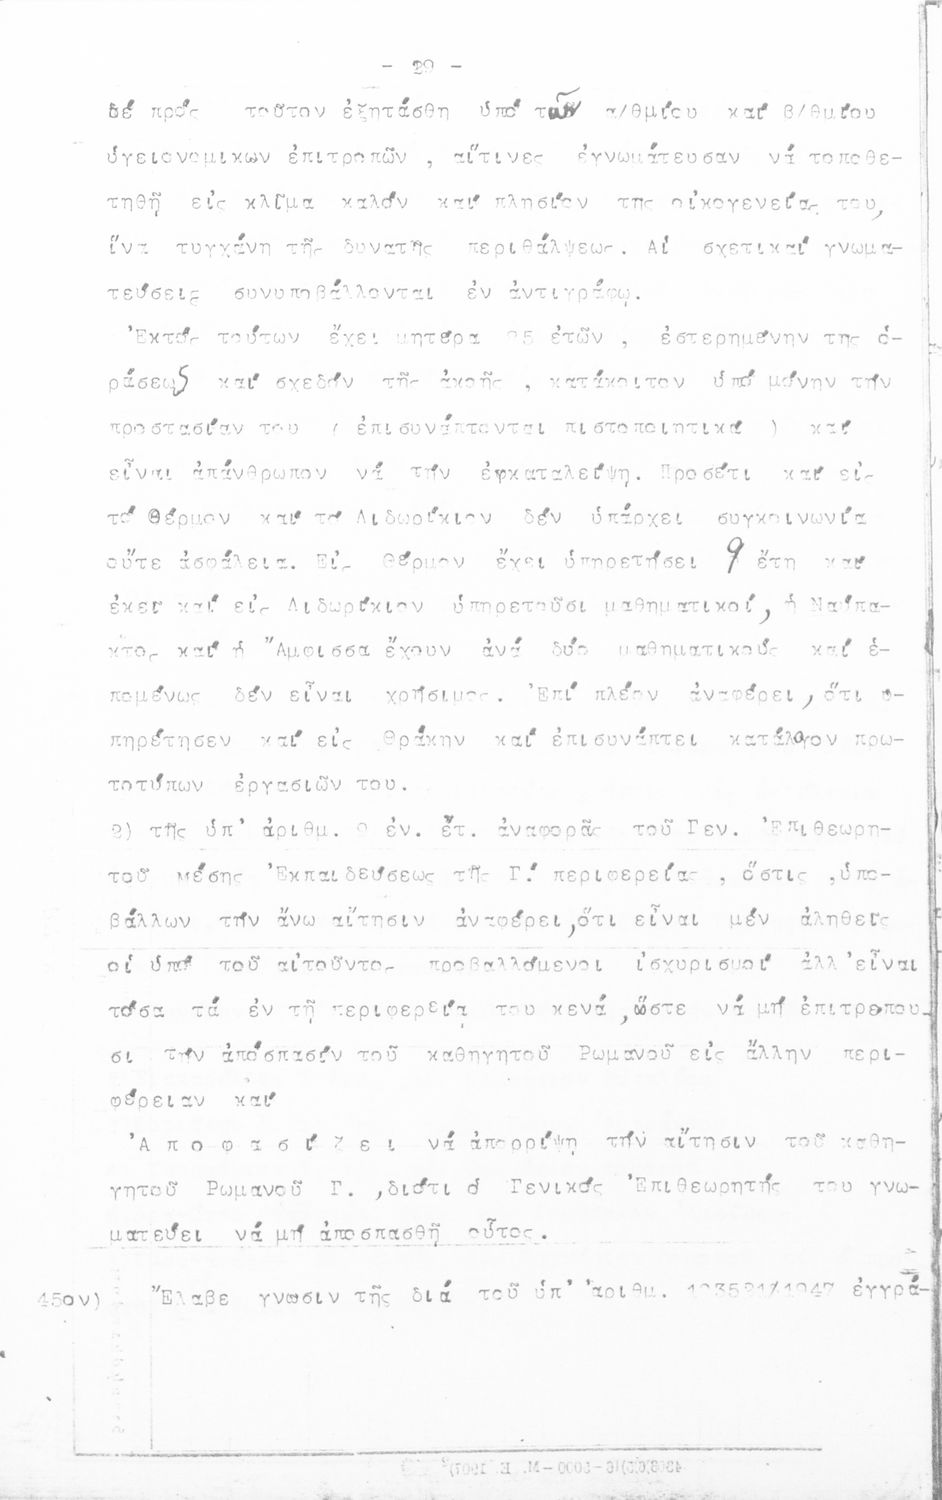 - 29 -
δέ πρός τοῦτον ἐξητάσθη ὑπό τῶν α/θμίου καί β/θμίου
ὑγειονομικων ἐπιτροπῶν , αἵτινες ἐγνωμάτευσαν νά τοποθε-
τηθῇ εἰς κλῖμα καλόν καί πλησίον της οἰκογενείας του,
ἵνα τυγχάνη τῆς δυνατῆς περιθάλψεως. Αἱ σχετικαί γνωμα-
τεύσεις συνυποβάλλονται ἐν ἀντιγράφῳ.
Ἐκτός τούτων ἔχει μητέρα 95 ἐτῶν , ἐστερημένην της ὁ-
ράσεως καί σχεδόν τῆς ἀκοῆς , κατάκοιτον ὑπό μόνην τήν
προστασίαν του ( ἐπισυνάπτονται πιστοποιητικά ) καί
εἶναι ἀπάνθρωπον νά τήν ἐφκαταλείψη. Προσέτι καί εἰς
τό Θέρμον καί τό Λιδωρίκιον δέν ὑπάρχει συγκοινωνία
οὔτε ἀσφάλεια. Εἰς Θέρμον ἔχει ὑπηρετήσει 9 ἔτη καί
ἐκεῖ καί εἰς Λιδωρίκιον ὑπηρετοῦσι μαθηματικοί, ἡ Ναύπα-
κτος καί ἡ Ἄμφισσα ἔχουν ἀνά δύο μαθηματικούς καί ἑ-
πομένως δέν εἶναι χρήσιμος. Ἐπί πλέον ἀναφέρει, ὅτι ὑ-
πηρέτησεν καί εἰς Θράκην καί ἐπισυνάπτει κατάλογον πρω-
τοτύπων ἐργασιῶν του.
2) τῆς ὑπ' ἀριθμ. 2 ἐν. ἔτ. ἀναφορᾶς τοῦ Γεν. Ἐπιθεωρη-
τοῦ Μέσης Ἐκπαιδεύσεως τῆς Γ.' περιφερείας , ὅστις ,ὑπο-
βάλλων τήν ἄνω αἴτησιν ἀναφέρει,ὅτι εἶναι μέν ἀληθεῖς
οἱ ὑπό τοῦ αἰτοῦντος προβαλλόμενοι ἰσχυρισμοί ἀλλ'εἶναι
τόσα τά ἐν τῇ περιφερείᾳ του κενά ,ὥστε νά μή ἐπιτρέπου-
σι τήν ἀπόσπασίν τοῦ καθηγητοῦ Ρωμανοῦ εἰς ἄλλην περι-
φέρειαν καί
Ἀ π ο φ α σ ί ζ ε ι νά ἀπορρίψη τήν αἴτησιν τοῦ καθη-
γητοῦ Ρωμανοῦ Γ. ,διότι ὁ Γενικός Ἐπιθεωρητής του γνω-
ματεύει νά μή ἀποσπασθῇ οὗτος.
45ον) Ἔλαβε γνῶσιν τῆς διά τοῦ ὑπ' ἀριθμ. 103521/1947 ἐγγρά-